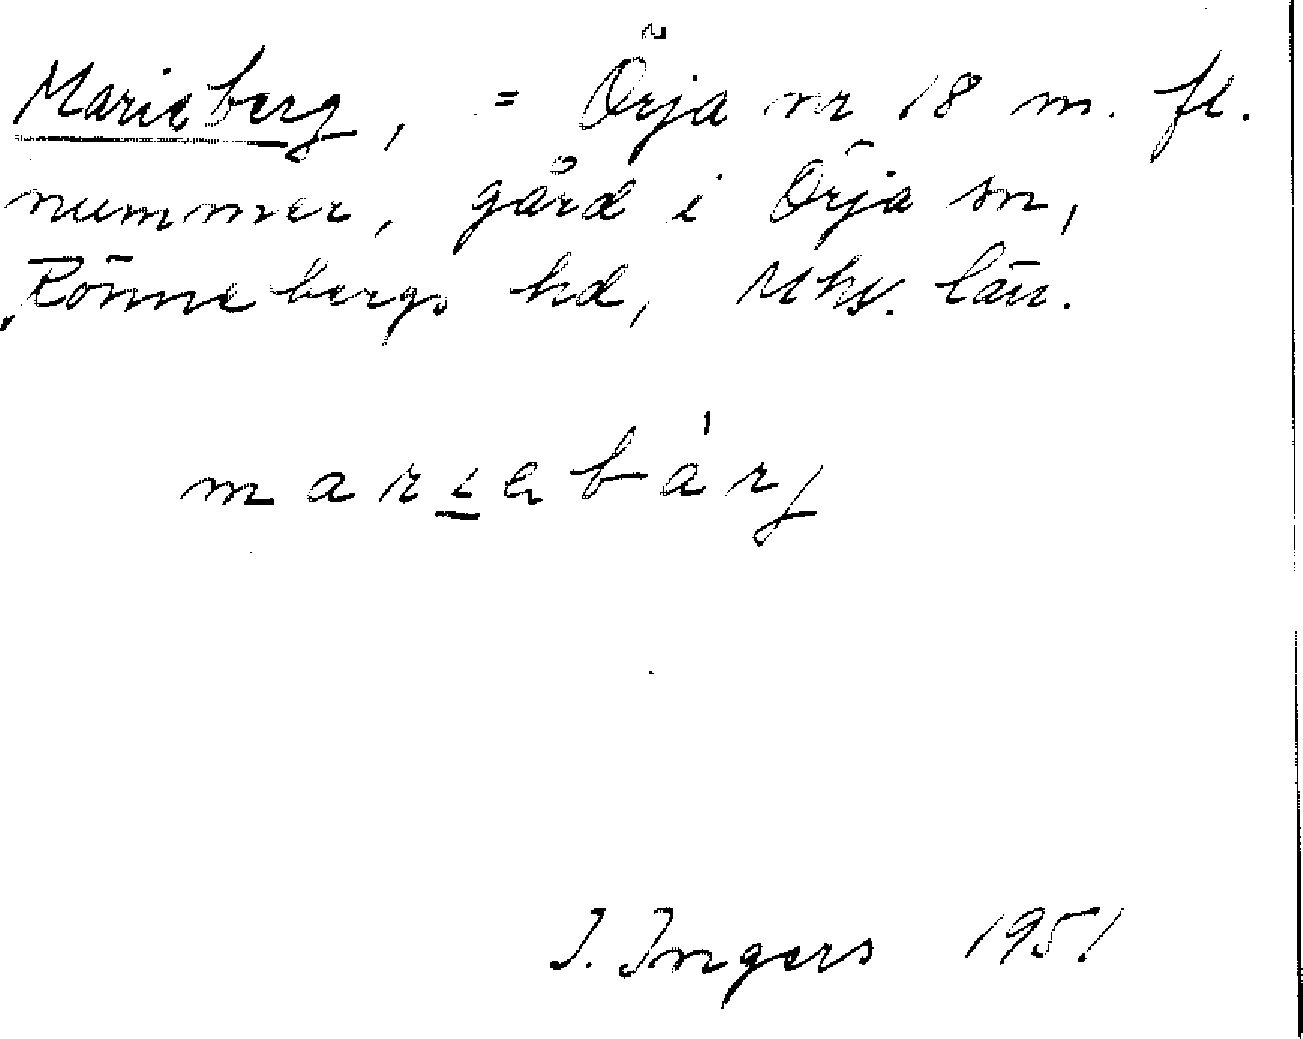 Marieberg, = Örja nr 18 m. fl.
nummer, gård i Örja sn,
Rönnebergs hd, Mhs. län.
I. Ingers 1951